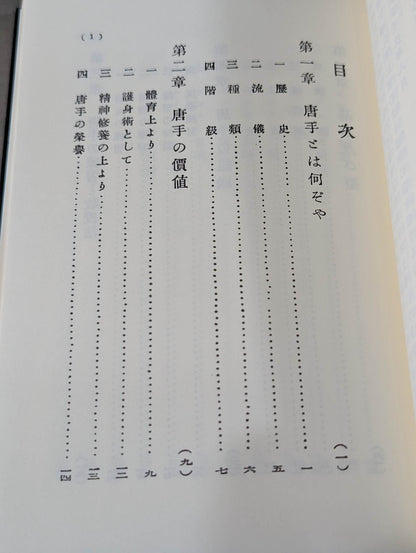 目次
第一章 唐手とは何ぞや (一)
一 歷史 一
二 流儀 五
三 種類 六
四 階級 七
第二章 唐手の價値 (九)
一 體育上より 九
二 護身術として 一二
三 精神修養の上より 一三
四 唐手の榮譽 一四
(1)